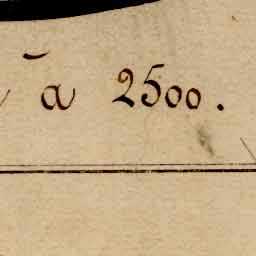 à 2500.